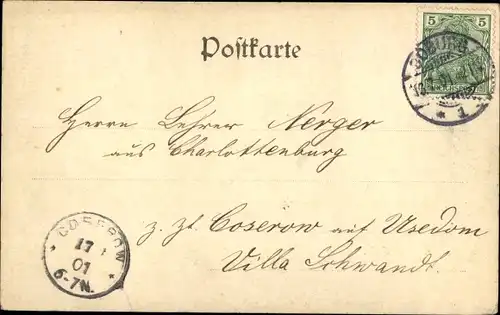 5 5
COBURG
* 1
Postkarte
Herrn Lehrer Nerger
aus Charlottenburg
z. Zt. Coserow auf Usedom
Villa Schwandt.
COSEROW
17
01
6-7N.